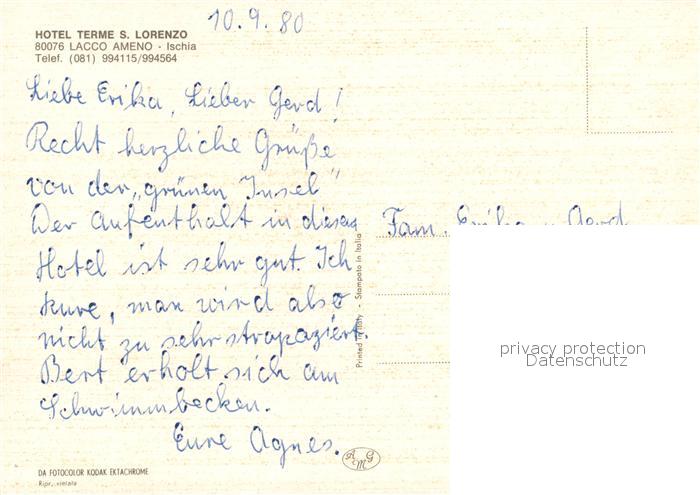 10.9.80
HOTEL TERME S. LORENZO
80076 LACCO AMENO - Ischia
Telef. (081) 994115/994564
Liebe Erika, Lieber Gerd!
Recht herzliche Grüße
von der „grünen Insel"
Der Aufenthalt in diesem
Hotel ist sehr gut. Ich
kure, man wird also
nicht zu sehr strapaziert.
Bert erholt sich am
Schwimmbecken.
Eure Agnes.
Fam. Erika u Gerd
Printed in Italy - Stampato in Italia
privacy protection
Datenschutz
AMG
DA FOTOCOLOR KODAK EKTACHROME
Ripr. vietata